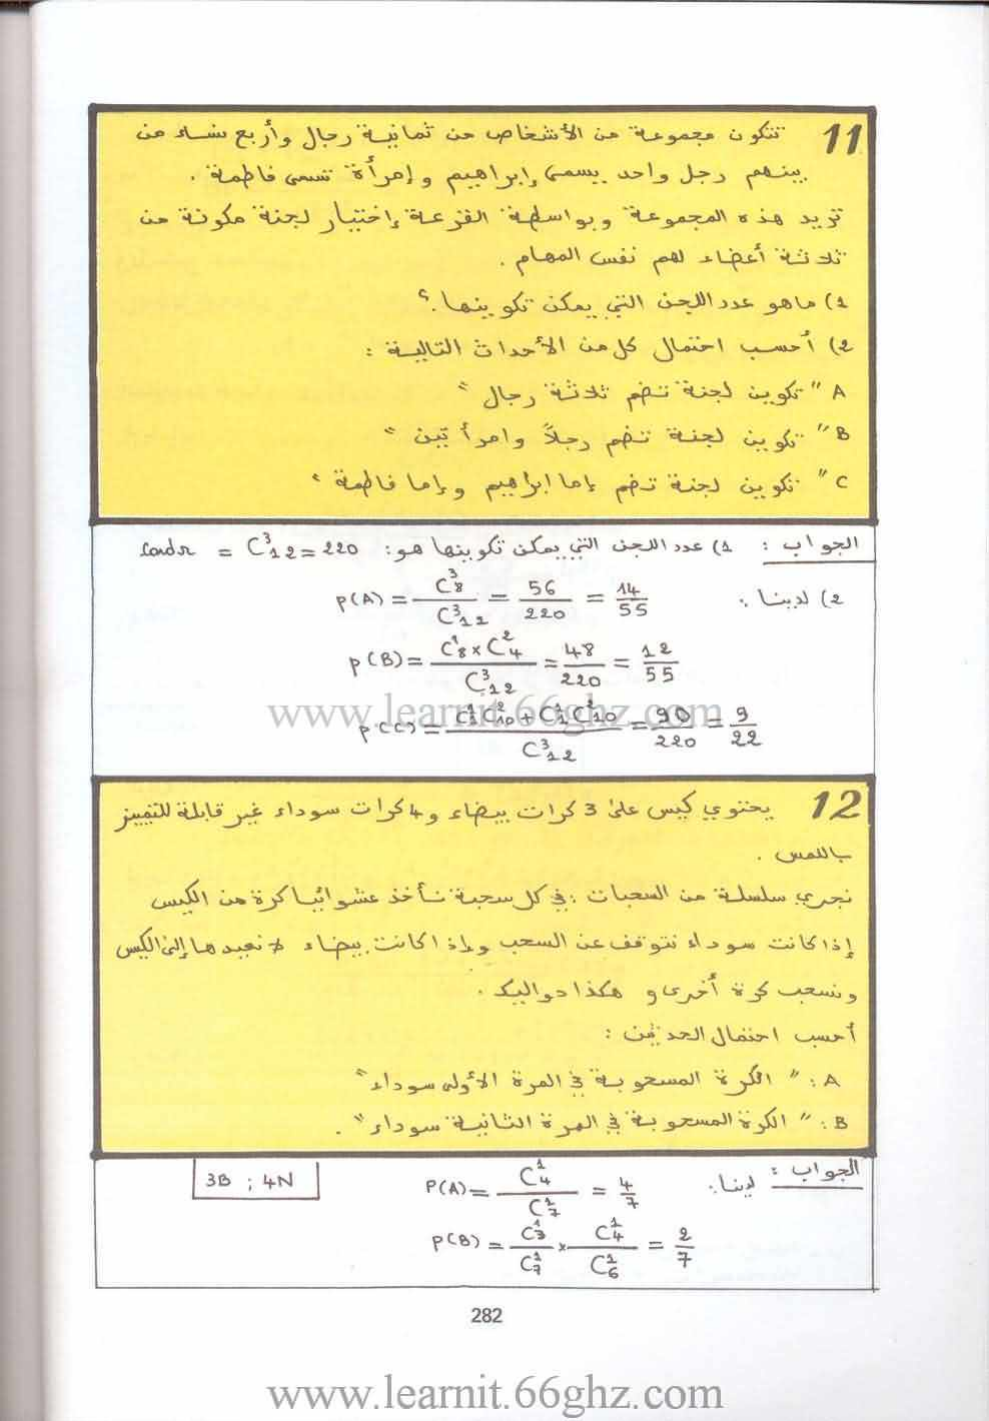 11 تتكون مجموعة من الأشخاص من ثمانية رجال وأربع نساء من
بينهم رجل واحد يسمى إبراهيم و إمرأة تسمى فاطمة .
تريد هذه المجموعة وبواسطة القرعة إختيار لجنة مكونة من
ثلاثة أعضاء لهم نفس المهام .
1) ماهو عدد اللجن التي يمكن تكوينها ؟
2) أحسب احتمال كل من الأحداث التالية :
A " تكوين لجنة تضم ثلاثة رجال "
B " تكوين لجنة تضم رجلاً وامرأتين "
C " تكوين لجنة تضم إما ابراهيم وإما فاطمة "
الجواب : 1) عدد اللجن التي يمكن تكوينها هو : cardΩ = C³₁₂ = 220
2) لدينا : p(A) = C³₈ / C³₁₂ = 56/220 = 14/55
p(B) = C¹₈ × C²₄ / C³₁₂ = 48/220 = 12/55
p(C) = C¹₁C²₁₀ + C¹₁C²₁₀ / C³₁₂ = 90/220 = 9/22
www.learnit.66ghz.com
12 يحتوي كيس على 3 كرات بيضاء و 4 كرات سوداء غير قابلة للتمييز
باللمس .
نجري سلسلة من السحبات : في كل سحبة نأخذ عشوائيا كرة من الكيس
إذا كانت سوداء نتوقف عن السحب وإذا كانت بيضاء لا نعيدها إلى الكيس
ونسحب كرة أخرى و هكذا دواليك .
أحسب احتمال الحدثين :
A : " الكرة المسحوبة في المرة الأولى سوداء "
B : " الكرة المسحوبة في المرة الثانية سوداء " .
الجواب : لدينا : P(A) = C¹₄ / C¹₇ = 4/7
3B ; 4N
p(B) = C¹₃ / C¹₇ × C¹₄ / C¹₆ = 2/7
282
www.learnit.66ghz.com